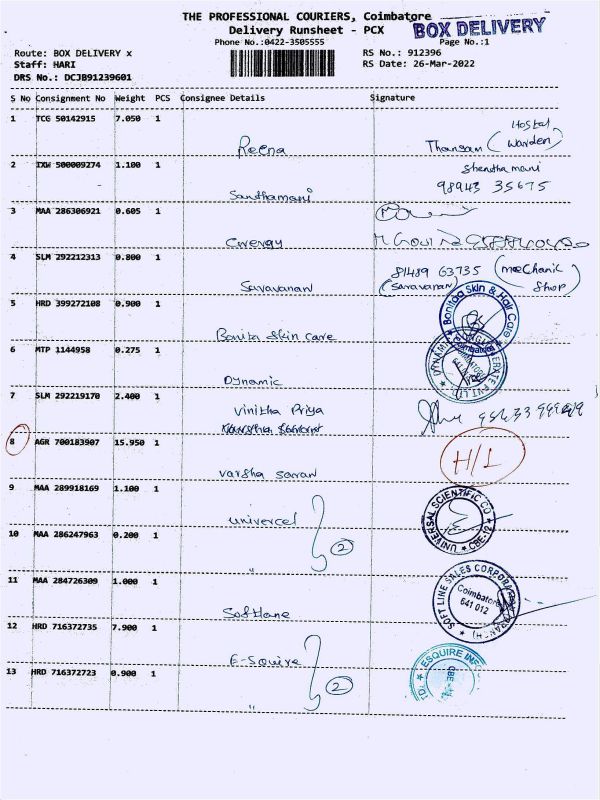 THE PROFESSIONAL COURIERS, Coimbatore
Delivery Runsheet - PCX
BOX DELIVERY
Phone No.:0422-3505555
Page No.:1
Route: BOX DELIVERY x
RS No.: 912396
Staff: HARI
RS Date: 26-Mar-2022
DRS No.: DCJB91239601
S No Consignment No Weight PCS Consignee Details Signature
1 TCG 50142915 7.050 1
Reena
Thangam (Hostel Warden)
2 IXW 500009274 1.100 1
Santhamani
Shentha mani
98943 35675
3 MAA 286306921 0.605 1
4 SLM 292212313 0.800 1
Saravanan
81489 63735
(Saravanan)
(mecchanic Shop)
5 HRD 399272108 0.900 1
Bonita Skin Care
Bonitaa Skin & Hair Care
Coimbatore
6 MTP 1144958 0.275 1
Dynamic
7 SLM 292219170 2.400 1
Vinitha Priya
8 AGR 700183907 15.950 1
Varsha Saran
H/L
9 MAA 289918169 1.100 1
univercel
UNIVERSAL SCIENTIFIC CO
CBE-12
10 MAA 286247963 0.200 1
"
2
11 MAA 284726309 1.000 1
Softlane
SOFT LINE SALES CORPORA
Coimbatore
641 012
12 HRD 716372735 7.900 1
E-Squire
ESQUIRE
13 HRD 716372723 0.900 1
"
2